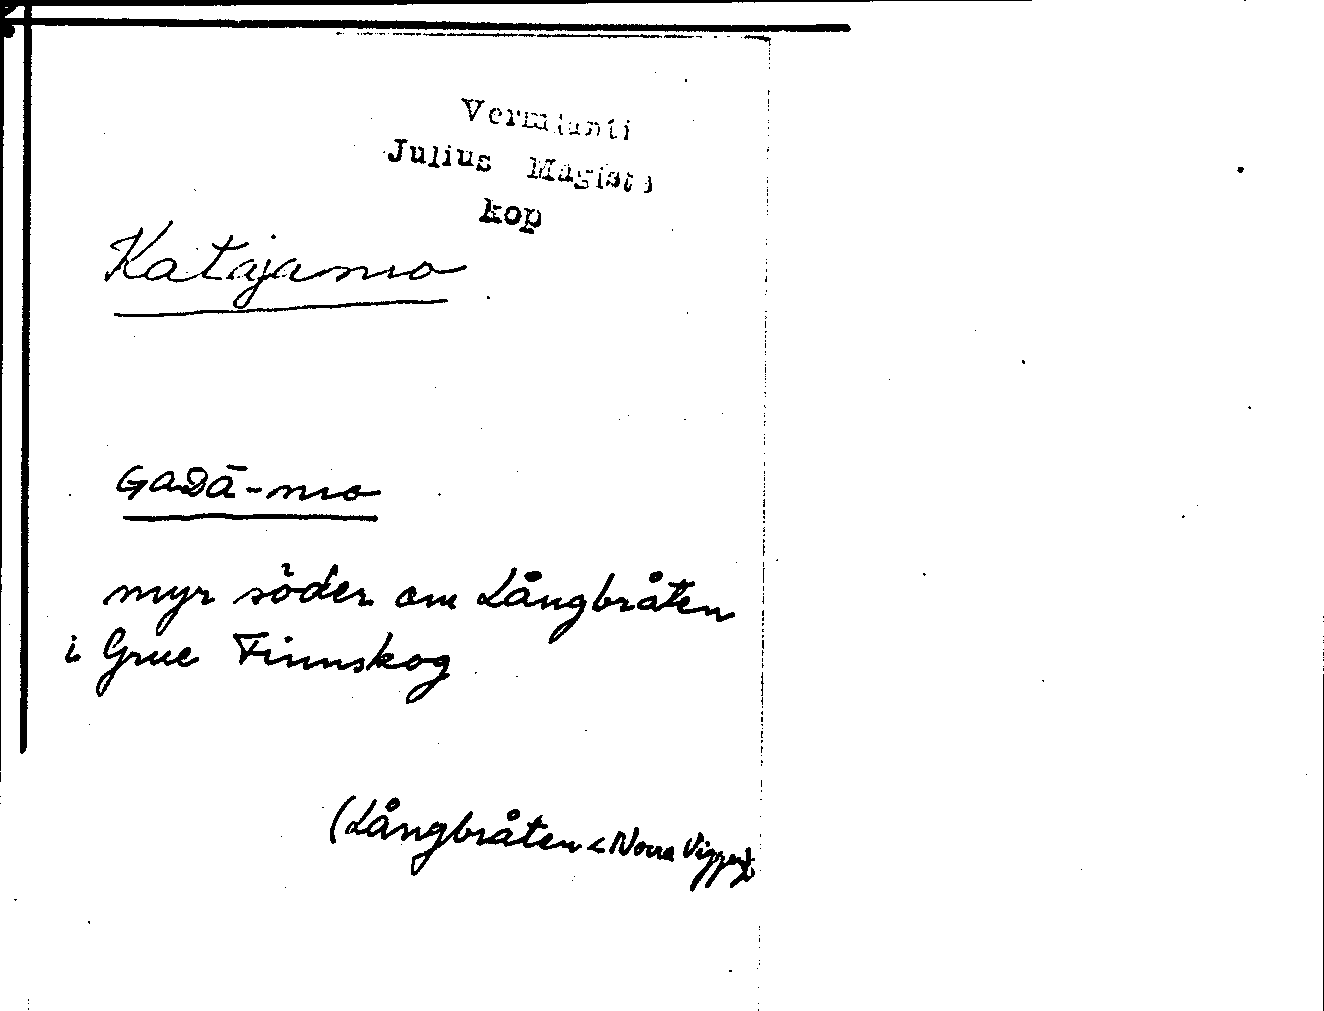 Vermlanti
Julius Mägiste
kop
Katajamo
GaDā-mo
myr söder om Långbråten
i Grue Finnskog
(Långbråten < Norra Viggen)